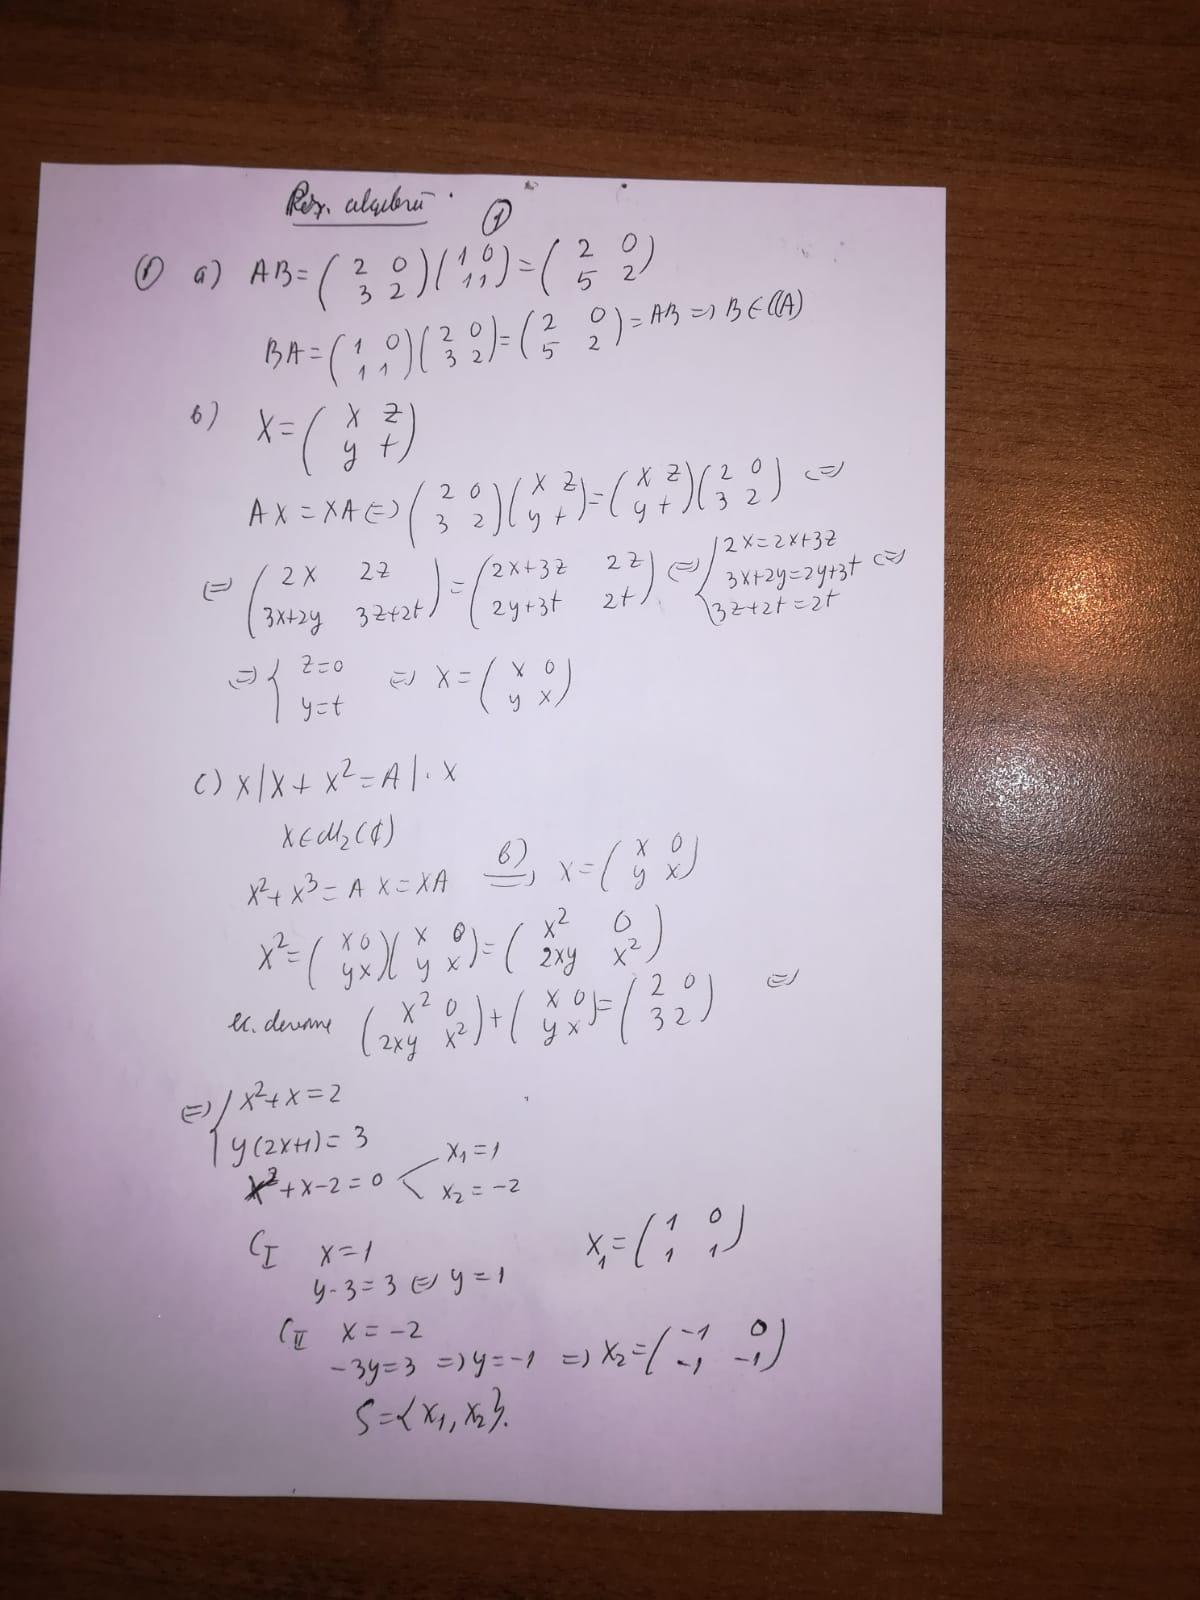 Rez. algebră
1
1 a) AB = (2 0; 3 2)(1 0; 1 1) = (2 0; 5 2)
BA = (1 0; 1 1)(2 0; 3 2) = (2 0; 5 2) = AB => B ∈ C(A)
b) X = (x z; y t)
AX = XA <=> (2 0; 3 2)(x z; y t) = (x z; y t)(2 0; 3 2) <=>
<=> (2x 2z; 3x+2y 3z+2t) = (2x+3z 2z; 2y+3t 2t) <=> { 2x=2x+3z; 3x+2y=2y+3t; 3z+2t=2t <=>
<=> { z=0; y=t <=> X = (x 0; y x)
c) X | X + X² = A | · X
X ∈ M₂(ℂ)
X² + X³ = AX = XA b) => X = (x 0; y x)
X² = (x 0; y x)(x 0; y x) = (x² 0; 2xy x²)
ec. devine (x² 0; 2xy x²) + (x 0; y x) = (2 0; 3 2) <=>
<=> { x²+x=2
y(2x+1)=3
x²+x-2=0 < x₁=1; x₂=-2
C I x=1 X₁ = (1 0; 1 1)
y·3=3 <=> y=1
C II x=-2
-3y=3 => y=-1 => X₂ = (-1 0; -1 -1)
S={X₁, X₂}.